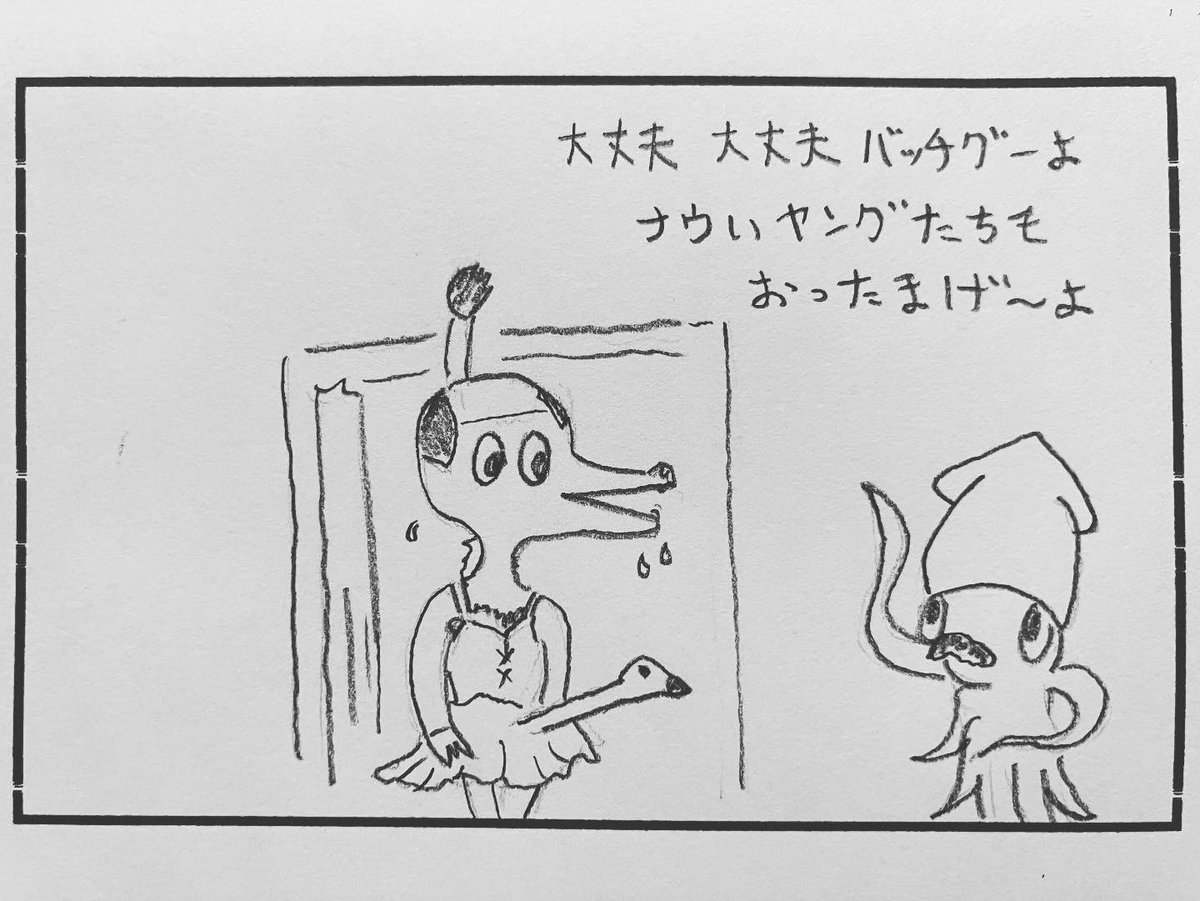 大丈夫 大丈夫 バッチグーよ
ナウいヤングたちも
おったまげ〜よ